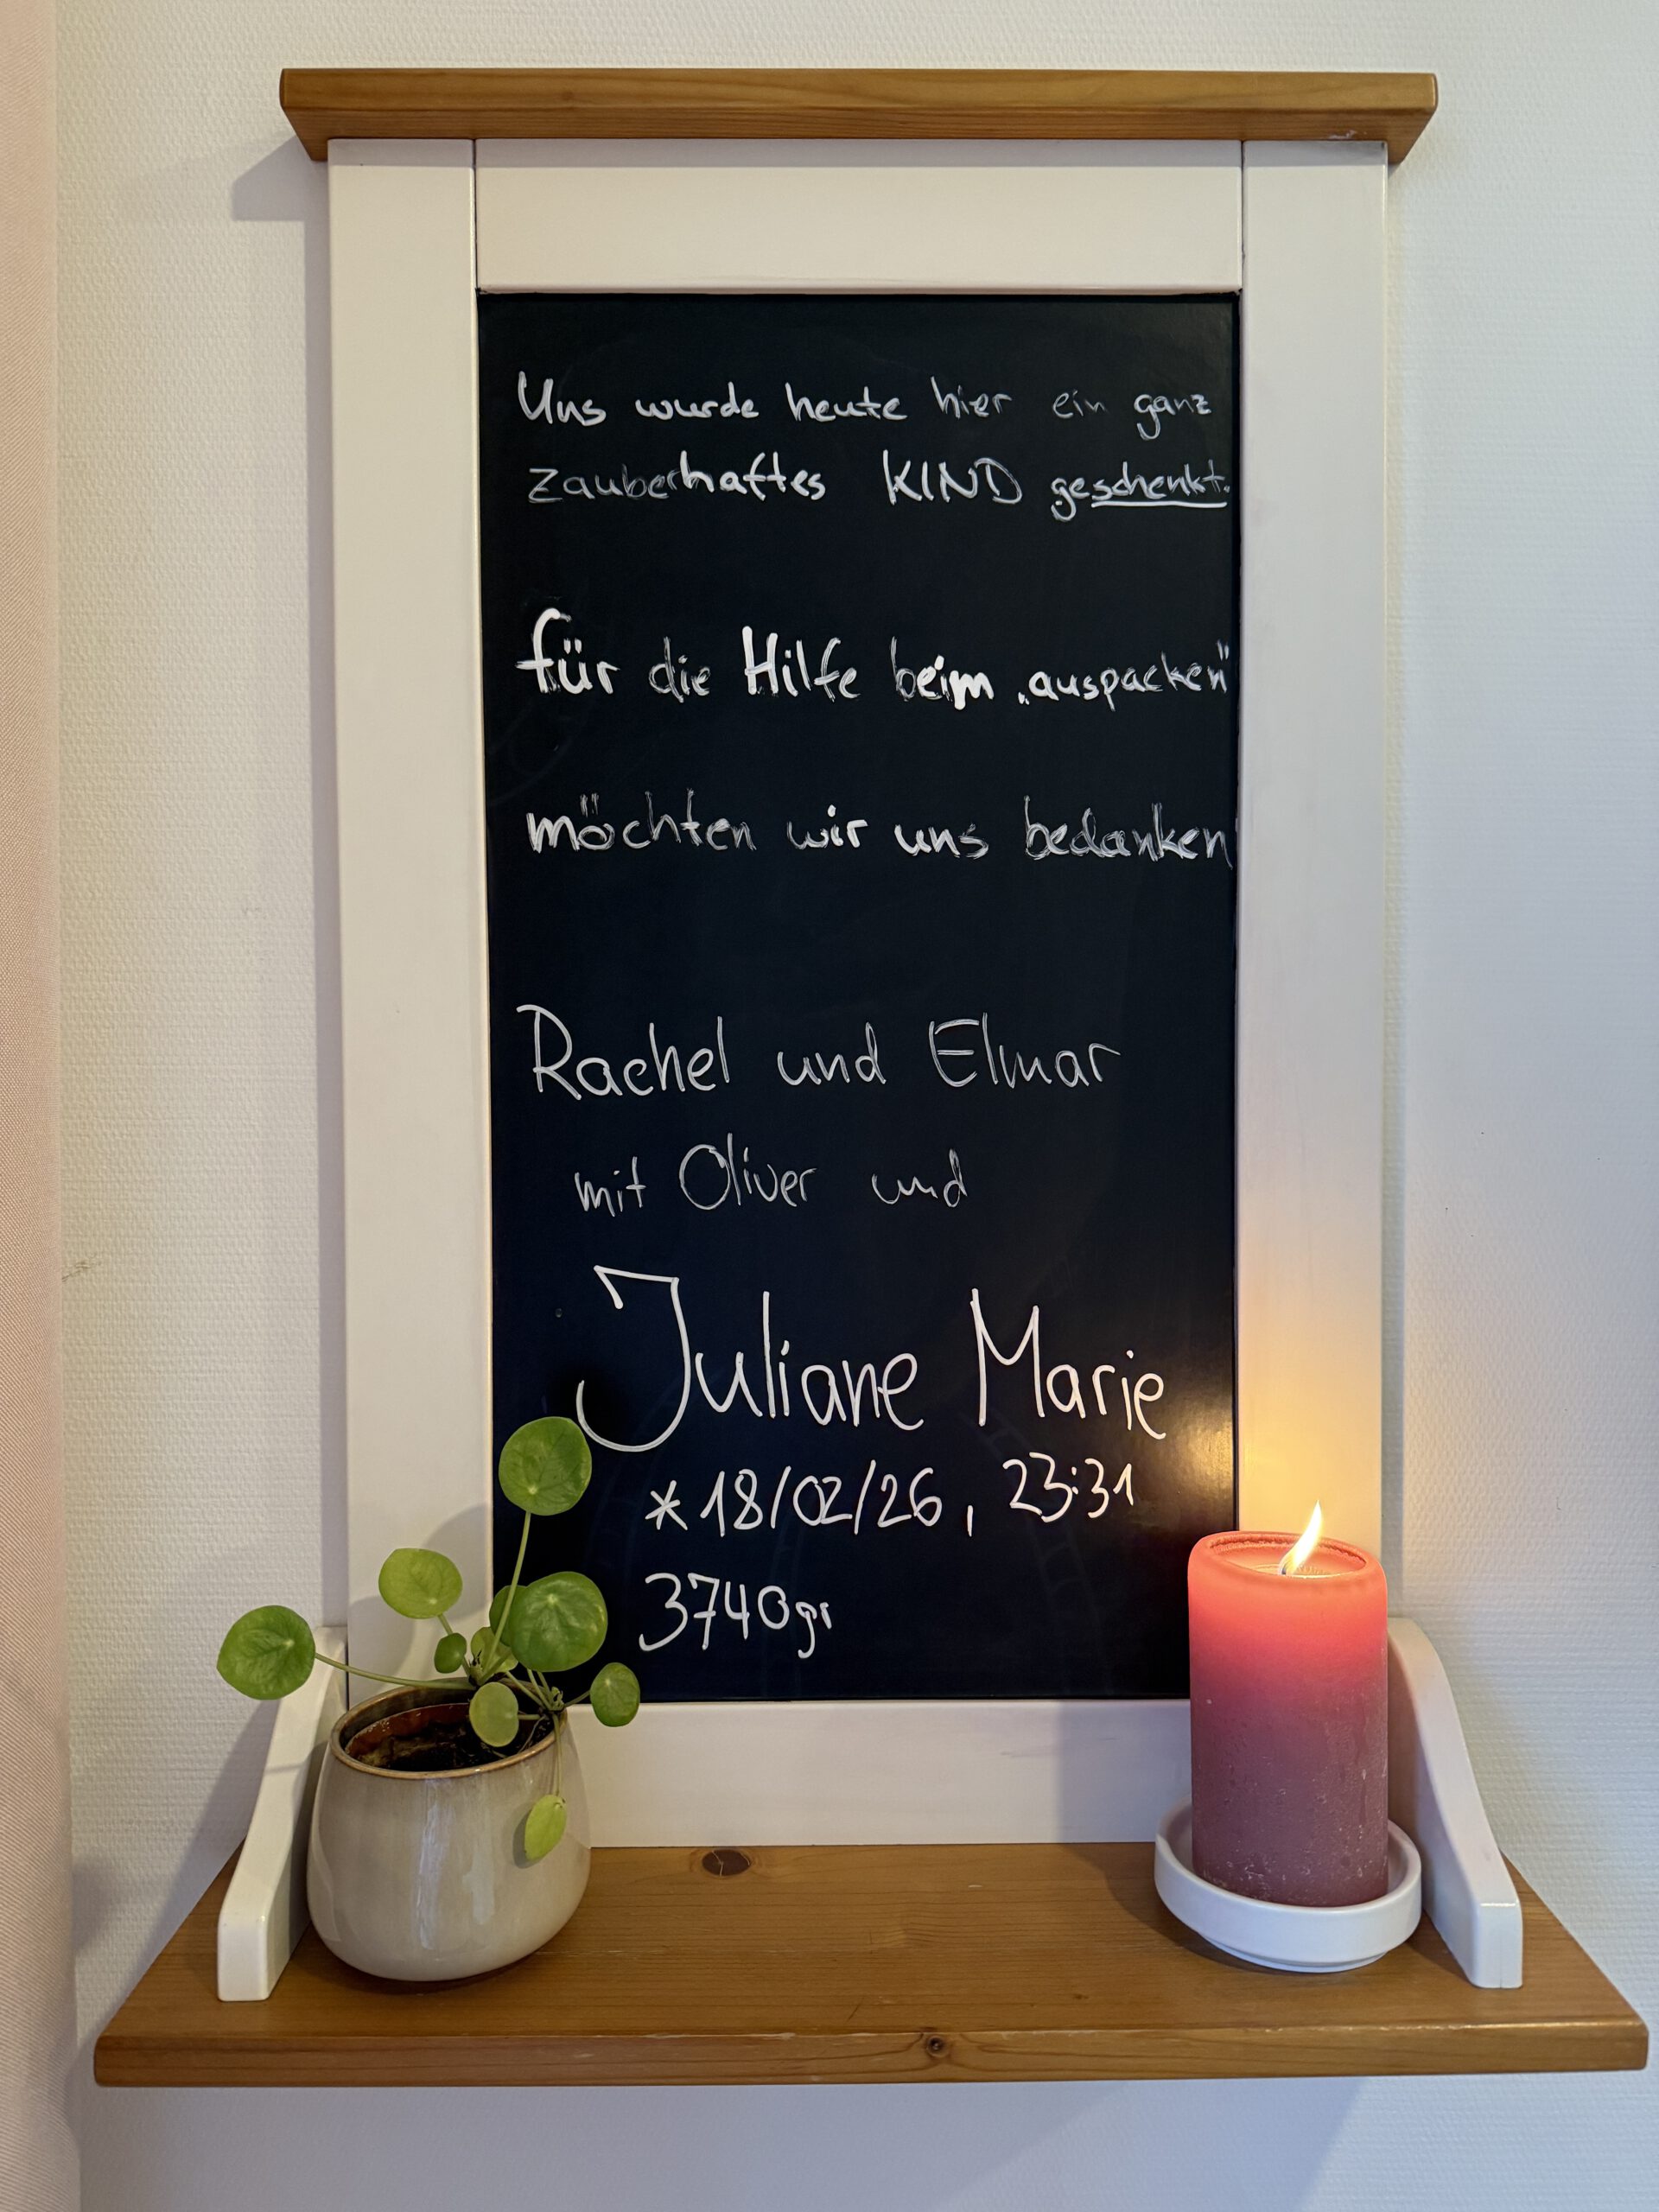 Uns wurde heute hier ein ganz
zauberhaftes KIND geschenkt.
für die Hilfe beim „auspacken"
möchten wir uns bedanken
Rachel und Elmar
mit Oliver und
Juliane Marie
* 18/02/26, 23:31
3740gr